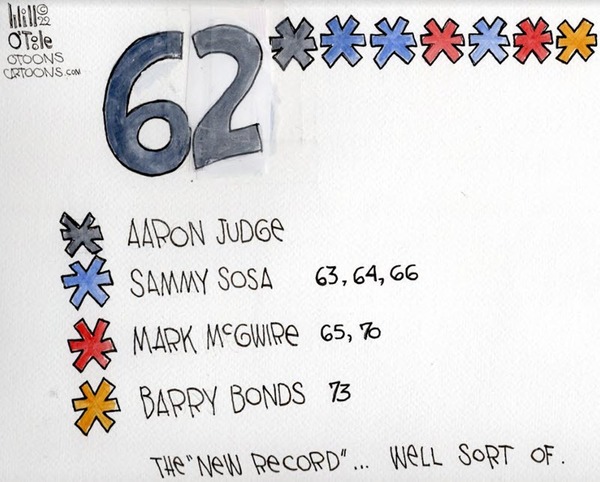 Will © 22
O'Toole
OTOONS
CARTOONS.COM
62*******
* AARON JUDGE
* SAMMY SOSA 63, 64, 66
* MARK McGWIRE 65, 70
* BARRY BONDS 73
THE "NEW RECORD"... WELL SORT OF.